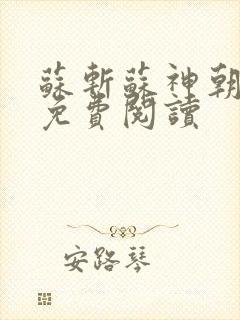 蘇斬蘇神朝
免費閱讀
安路琴